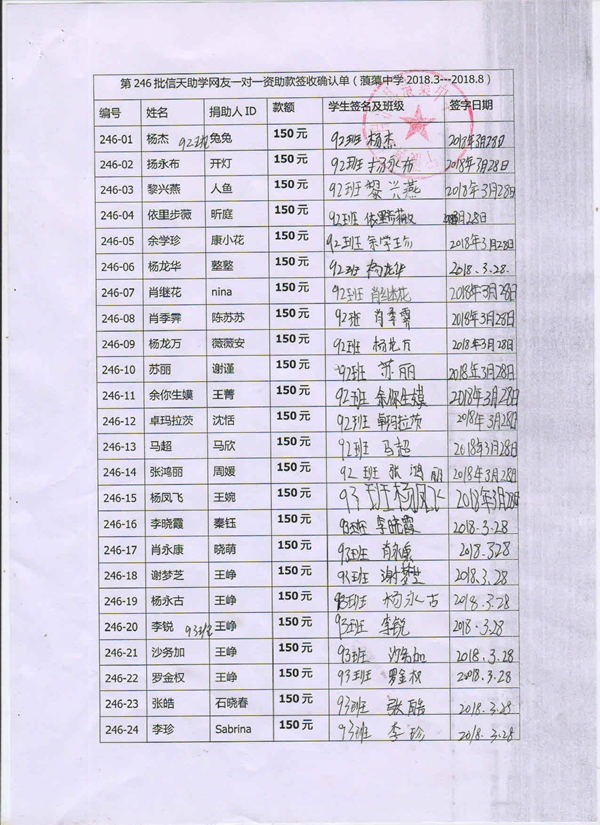 第246批信天助学网友一对一资助款签收确认单（蒗蕖中学2018.3---2018.8）
编号 姓名 捐助人ID 款额 学生签名及班级 签字日期
246-01 杨杰 92班 兔兔 150元 92班 杨杰 2018年3月28日
246-02 扬永布 开灯 150元 92班 扬永布 2018年3月28日
246-03 黎兴燕 人鱼 150元 92班 黎兴燕 2018年3月28日
246-04 依里步薇 昕庭 150元 92班 依里步薇 3月28日
246-05 余学珍 康小花 150元 92班 余学珍 2018年3月28日
246-06 杨龙华 墪墪 150元 92班 杨龙华 2018.3.28.
246-07 肖继花 nina 150元 92班 肖继花 2018年3月28日
246-08 肖季霁 陈苏苏 150元 92班 肖季霁 2018年3月28日
246-09 杨龙万 薇薇安 150元 92班 杨龙万 2018年3月28日
246-10 苏丽 谢谨 150元 92班 苏丽 2018年3月28日
246-11 余你生嫫 王菁 150元 92班 余你生嫫 2018年3月28日
246-12 卓玛拉茨 沈恬 150元 92班 卓玛拉茨 2018年3月28日
246-13 马超 马欣 150元 92班 马超 2018年3月28日
246-14 张鸿丽 周媛 150元 92班 张鸿丽 2018年3月28日
246-15 杨凤飞 王婉 150元 93班 杨凤飞 2018年3月28日
246-16 李晓霞 秦钰 150元 93班 李晓霞 2018.3.28
246-17 肖永康 晓萌 150元 93班 肖永康 2018.328
246-18 谢梦芝 王峥 150元 93班 谢梦芝 2018.3.28
246-19 杨永古 王峥 150元 93班 杨永古 2018.3.28
246-20 李锐 93班 王峥 150元 93班 李锐 2018.3.28
246-21 沙务加 王峥 150元 93班 沙务加 2018.3.28
246-22 罗金权 王峥 150元 93班 罗金权 2018.3.28
246-23 张皓 石晓春 150元 93班 张皓 2018.3.28
246-24 李珍 Sabrina 150元 93班 李珍 2018.3.28